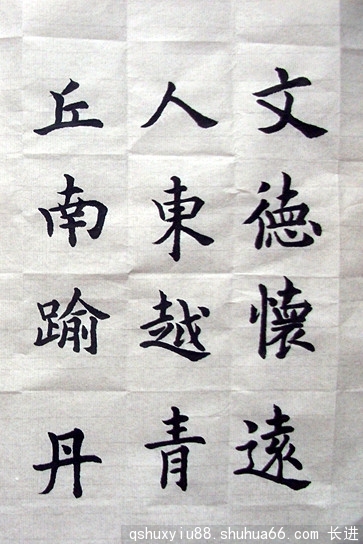 文德懷遠
人東越青
丘南踰丹
qshuxyiu88.shuhua66.com 长进